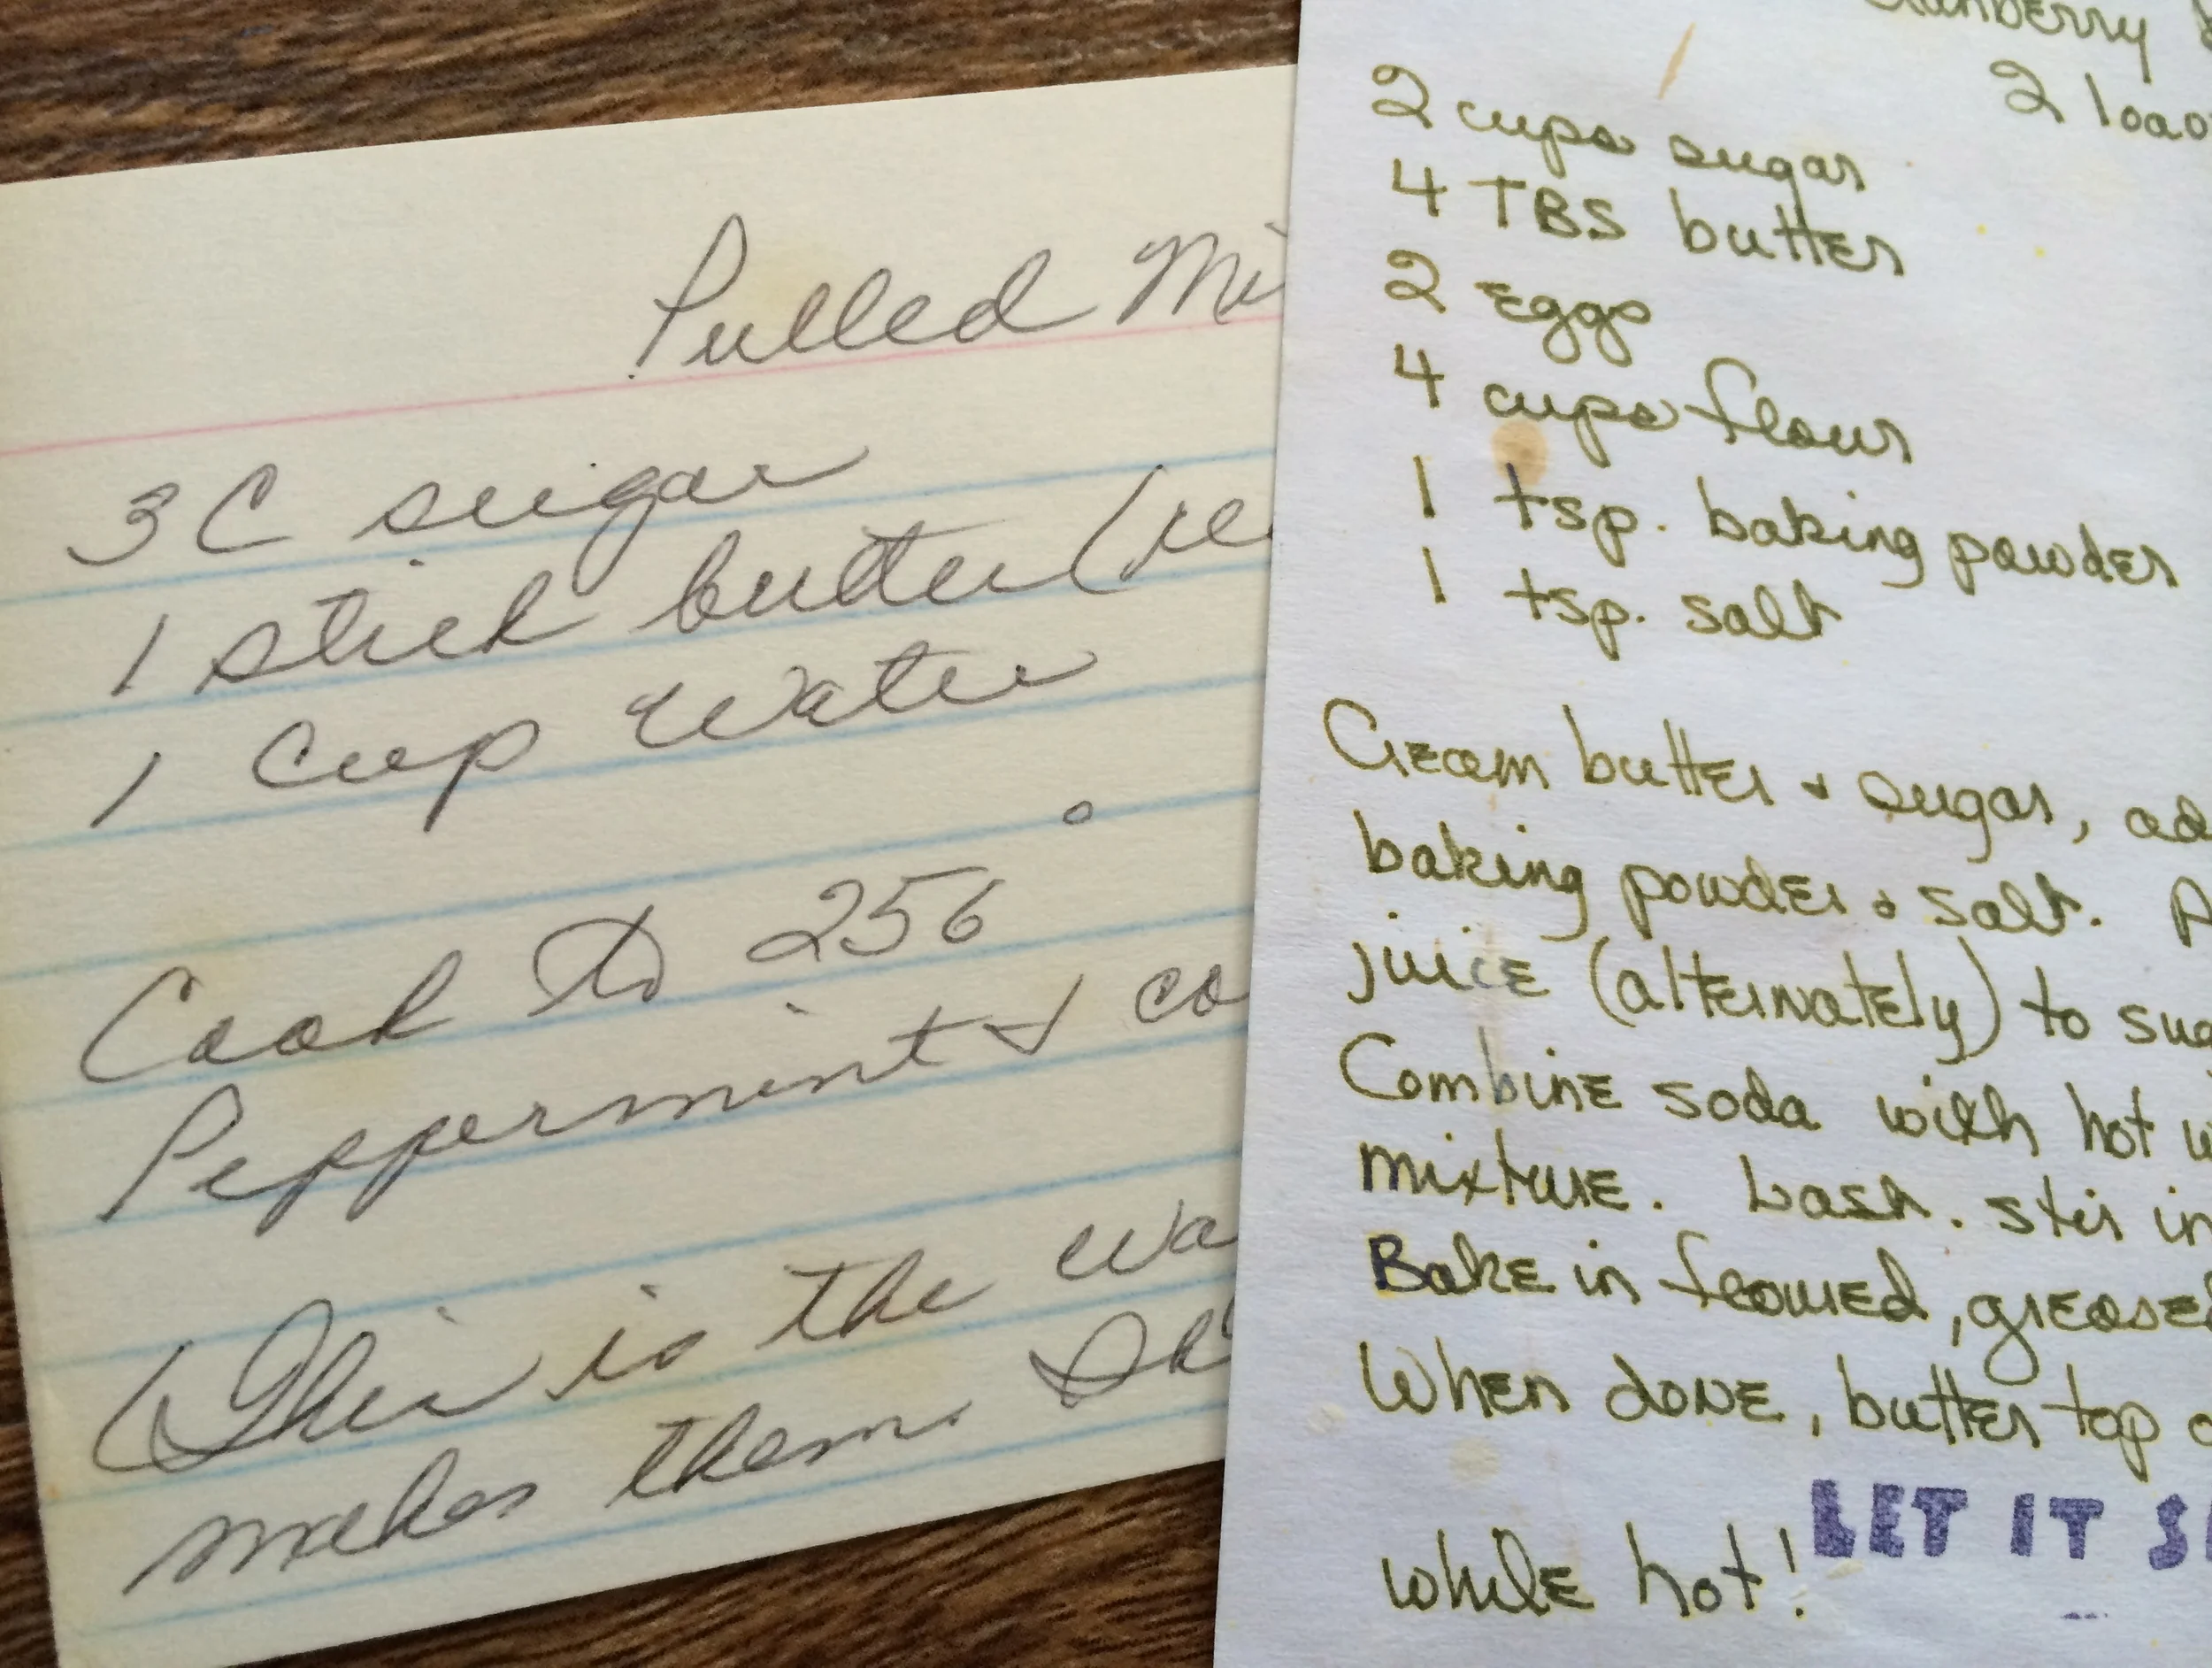 Pulled
3 C sugar
1 stick butter
1 cup water
Cook to 256°
Peppermint &
(This is the
makes them.
2 cups sugar
4 TBS butter
2 eggs
4 cups flour
1 tsp. baking powder
1 tsp. salt
2
Cream butter & sugar,
baking powder & salt.
juice (alternately) to
Combine soda with hot
mixture. Last. stir in
Bake in floured,
When done, butter top
while hot!
LET IT